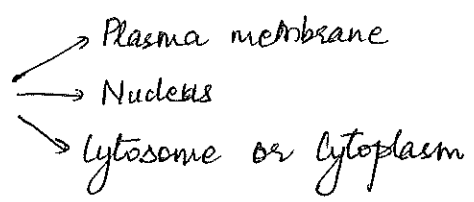 Plasma membrane
Nucleus
Cytosome or Cytoplasm